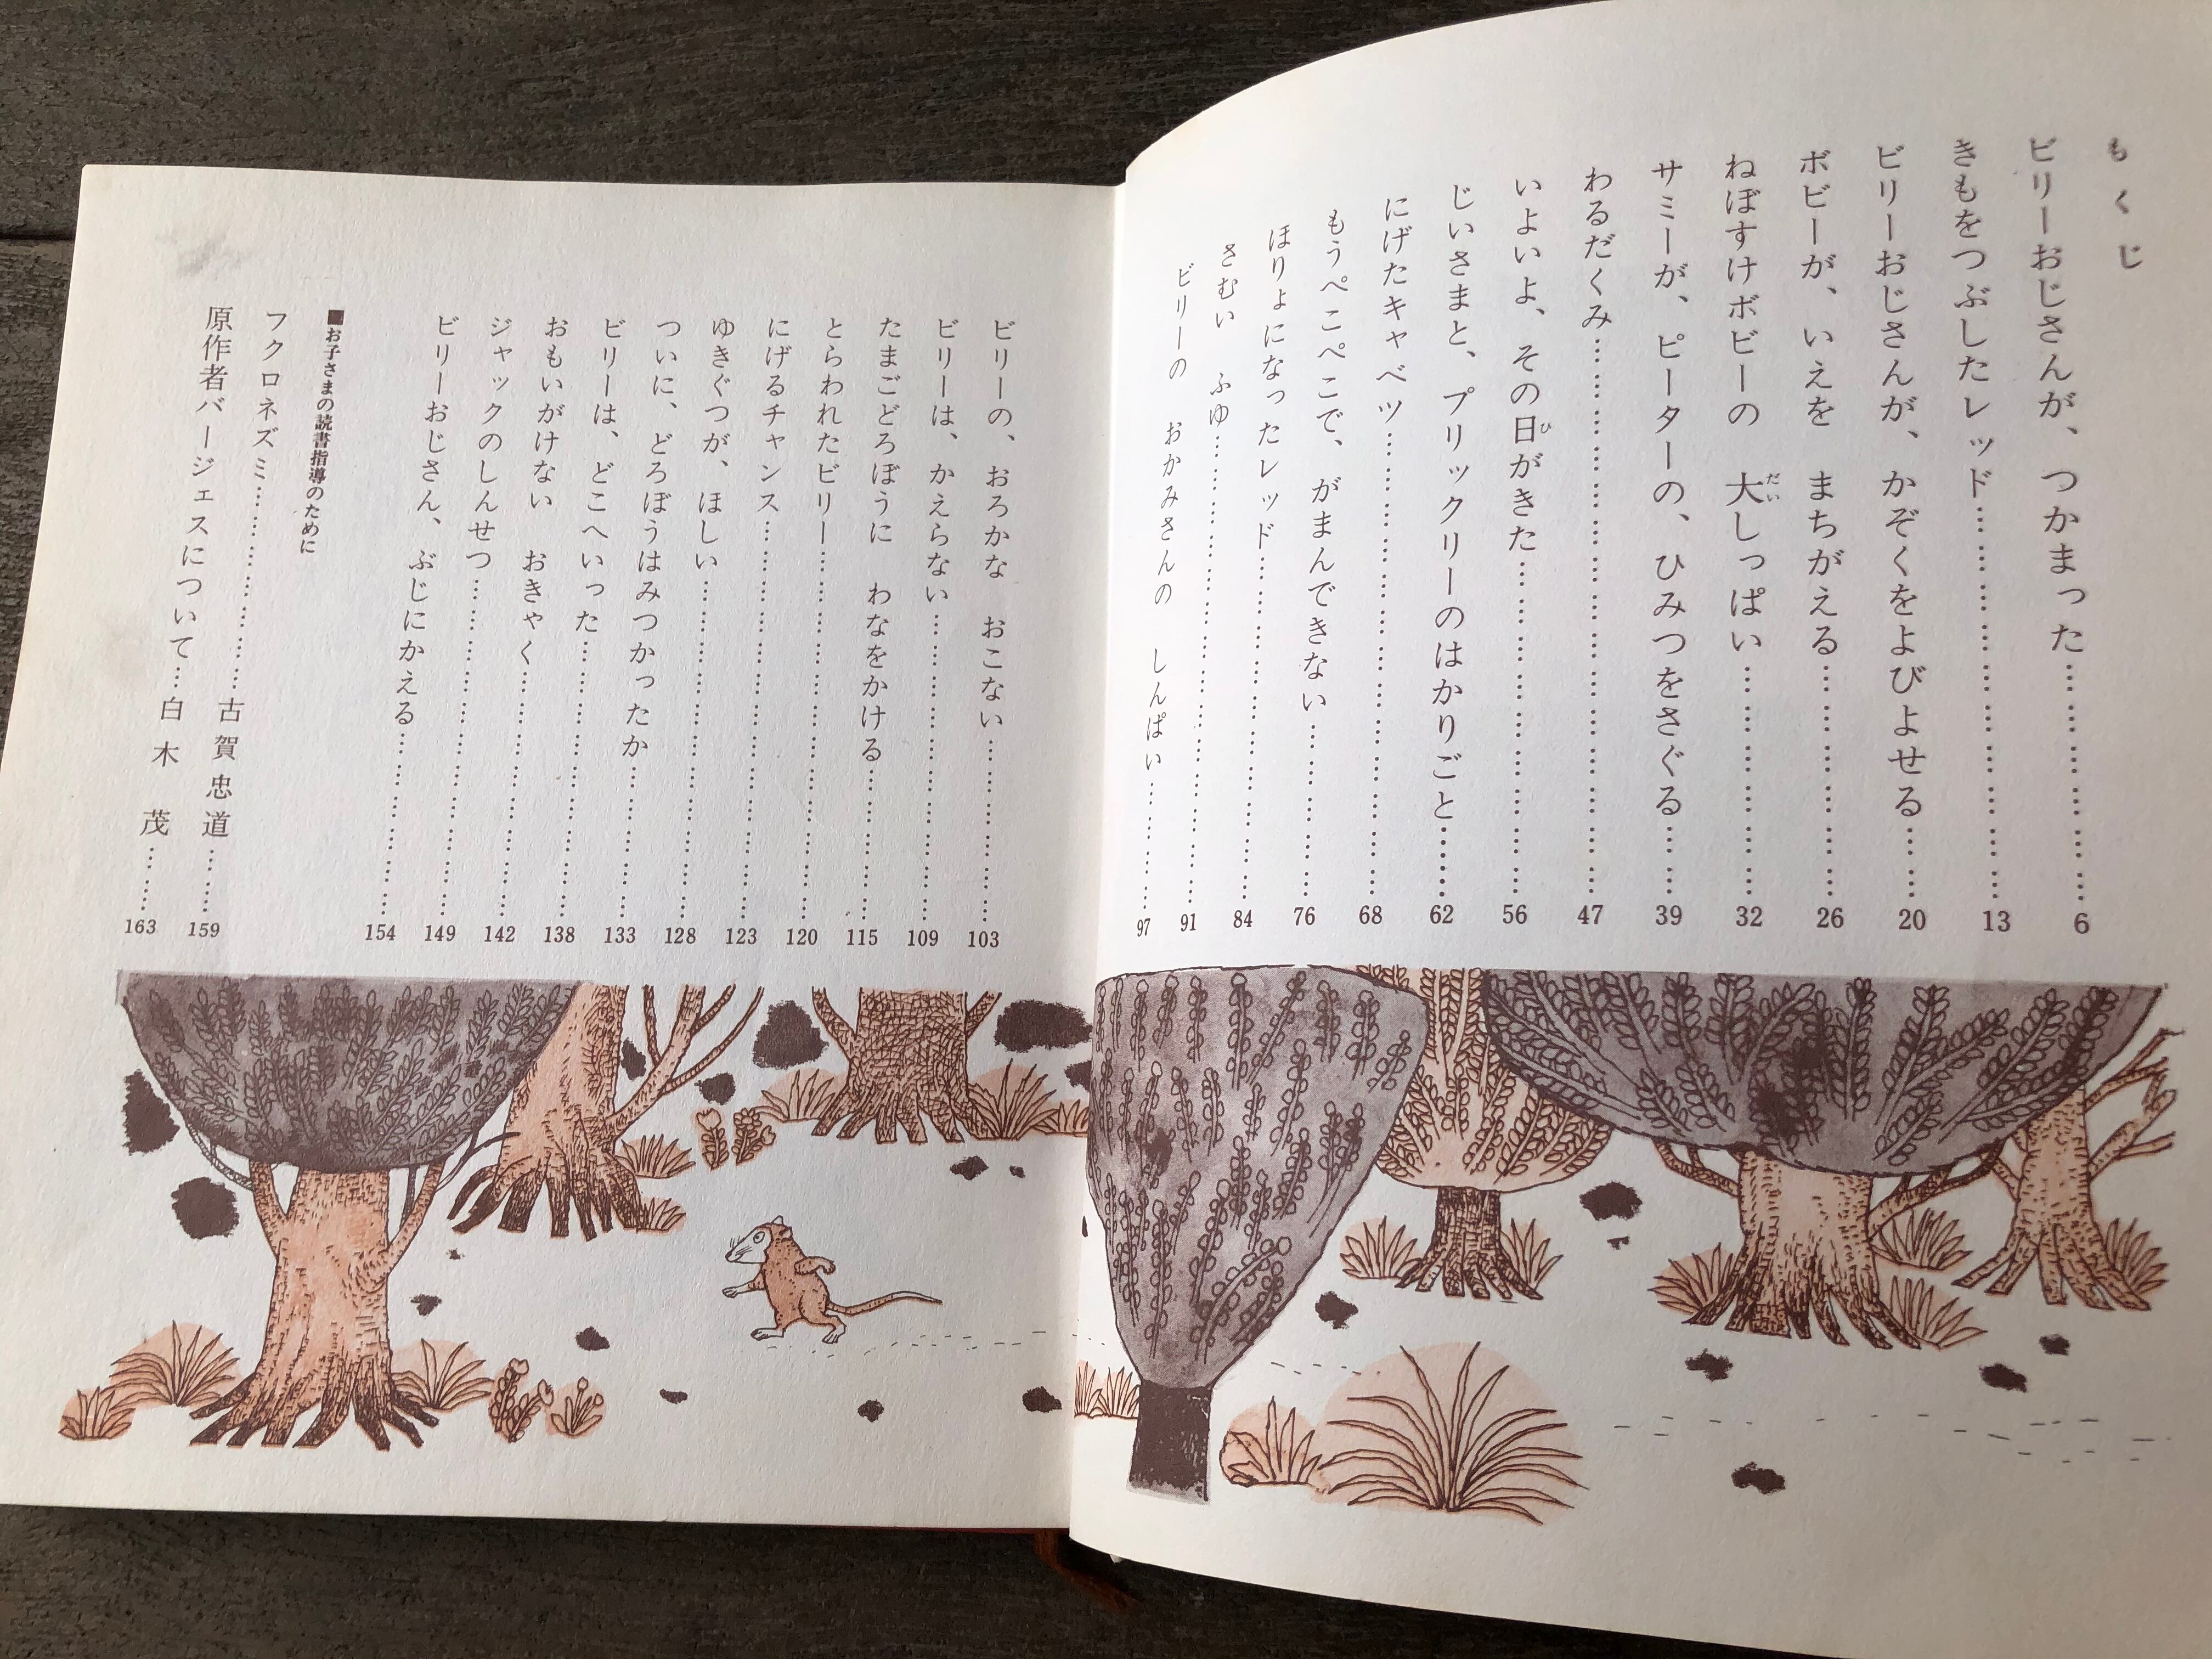 もくじ
ビリーおじさんが、つかまった……………………6
きもをつぶしたレッド……………………13
ビリーおじさんが、かぞくをよびよせる………20
ボビーが、いえを　まちがえる……………………26
ねぼすけボビーの　大しっぱい……………………32
サミーが、ピーターの、ひみつをさぐる………39
わるだくみ……………………47
いよいよ、その日がきた……………………56
じいさまと、プリックリーのはかりごと………62
にげたキャベツ……………………68
もうぺこぺこで、がまんできない………………76
ほりょになったレッド……………………84
さむい　ふゆ……………………91
ビリーの　おかみさんの　しんぱい……………97
ビリーの、おろかな　おこない……………103
ビリーは、かえらない……………………109
たまごどろぼうに　わなをかける……………115
とらわれたビリー……………………120
にげるチャンス……………………123
ゆきぐつが、ほしい……………………128
ついに、どろぼうはみつかったか……………133
ビリーは、どこへいった……………………138
おもいがけない　おきゃく……………………142
ジャックのしんせつ……………………149
ビリーおじさん、ぶじにかえる……………154
■お子さまの読書指導のために
フクロネズミ……………………古賀忠道………159
原作者バージェスについて…白木　茂………163